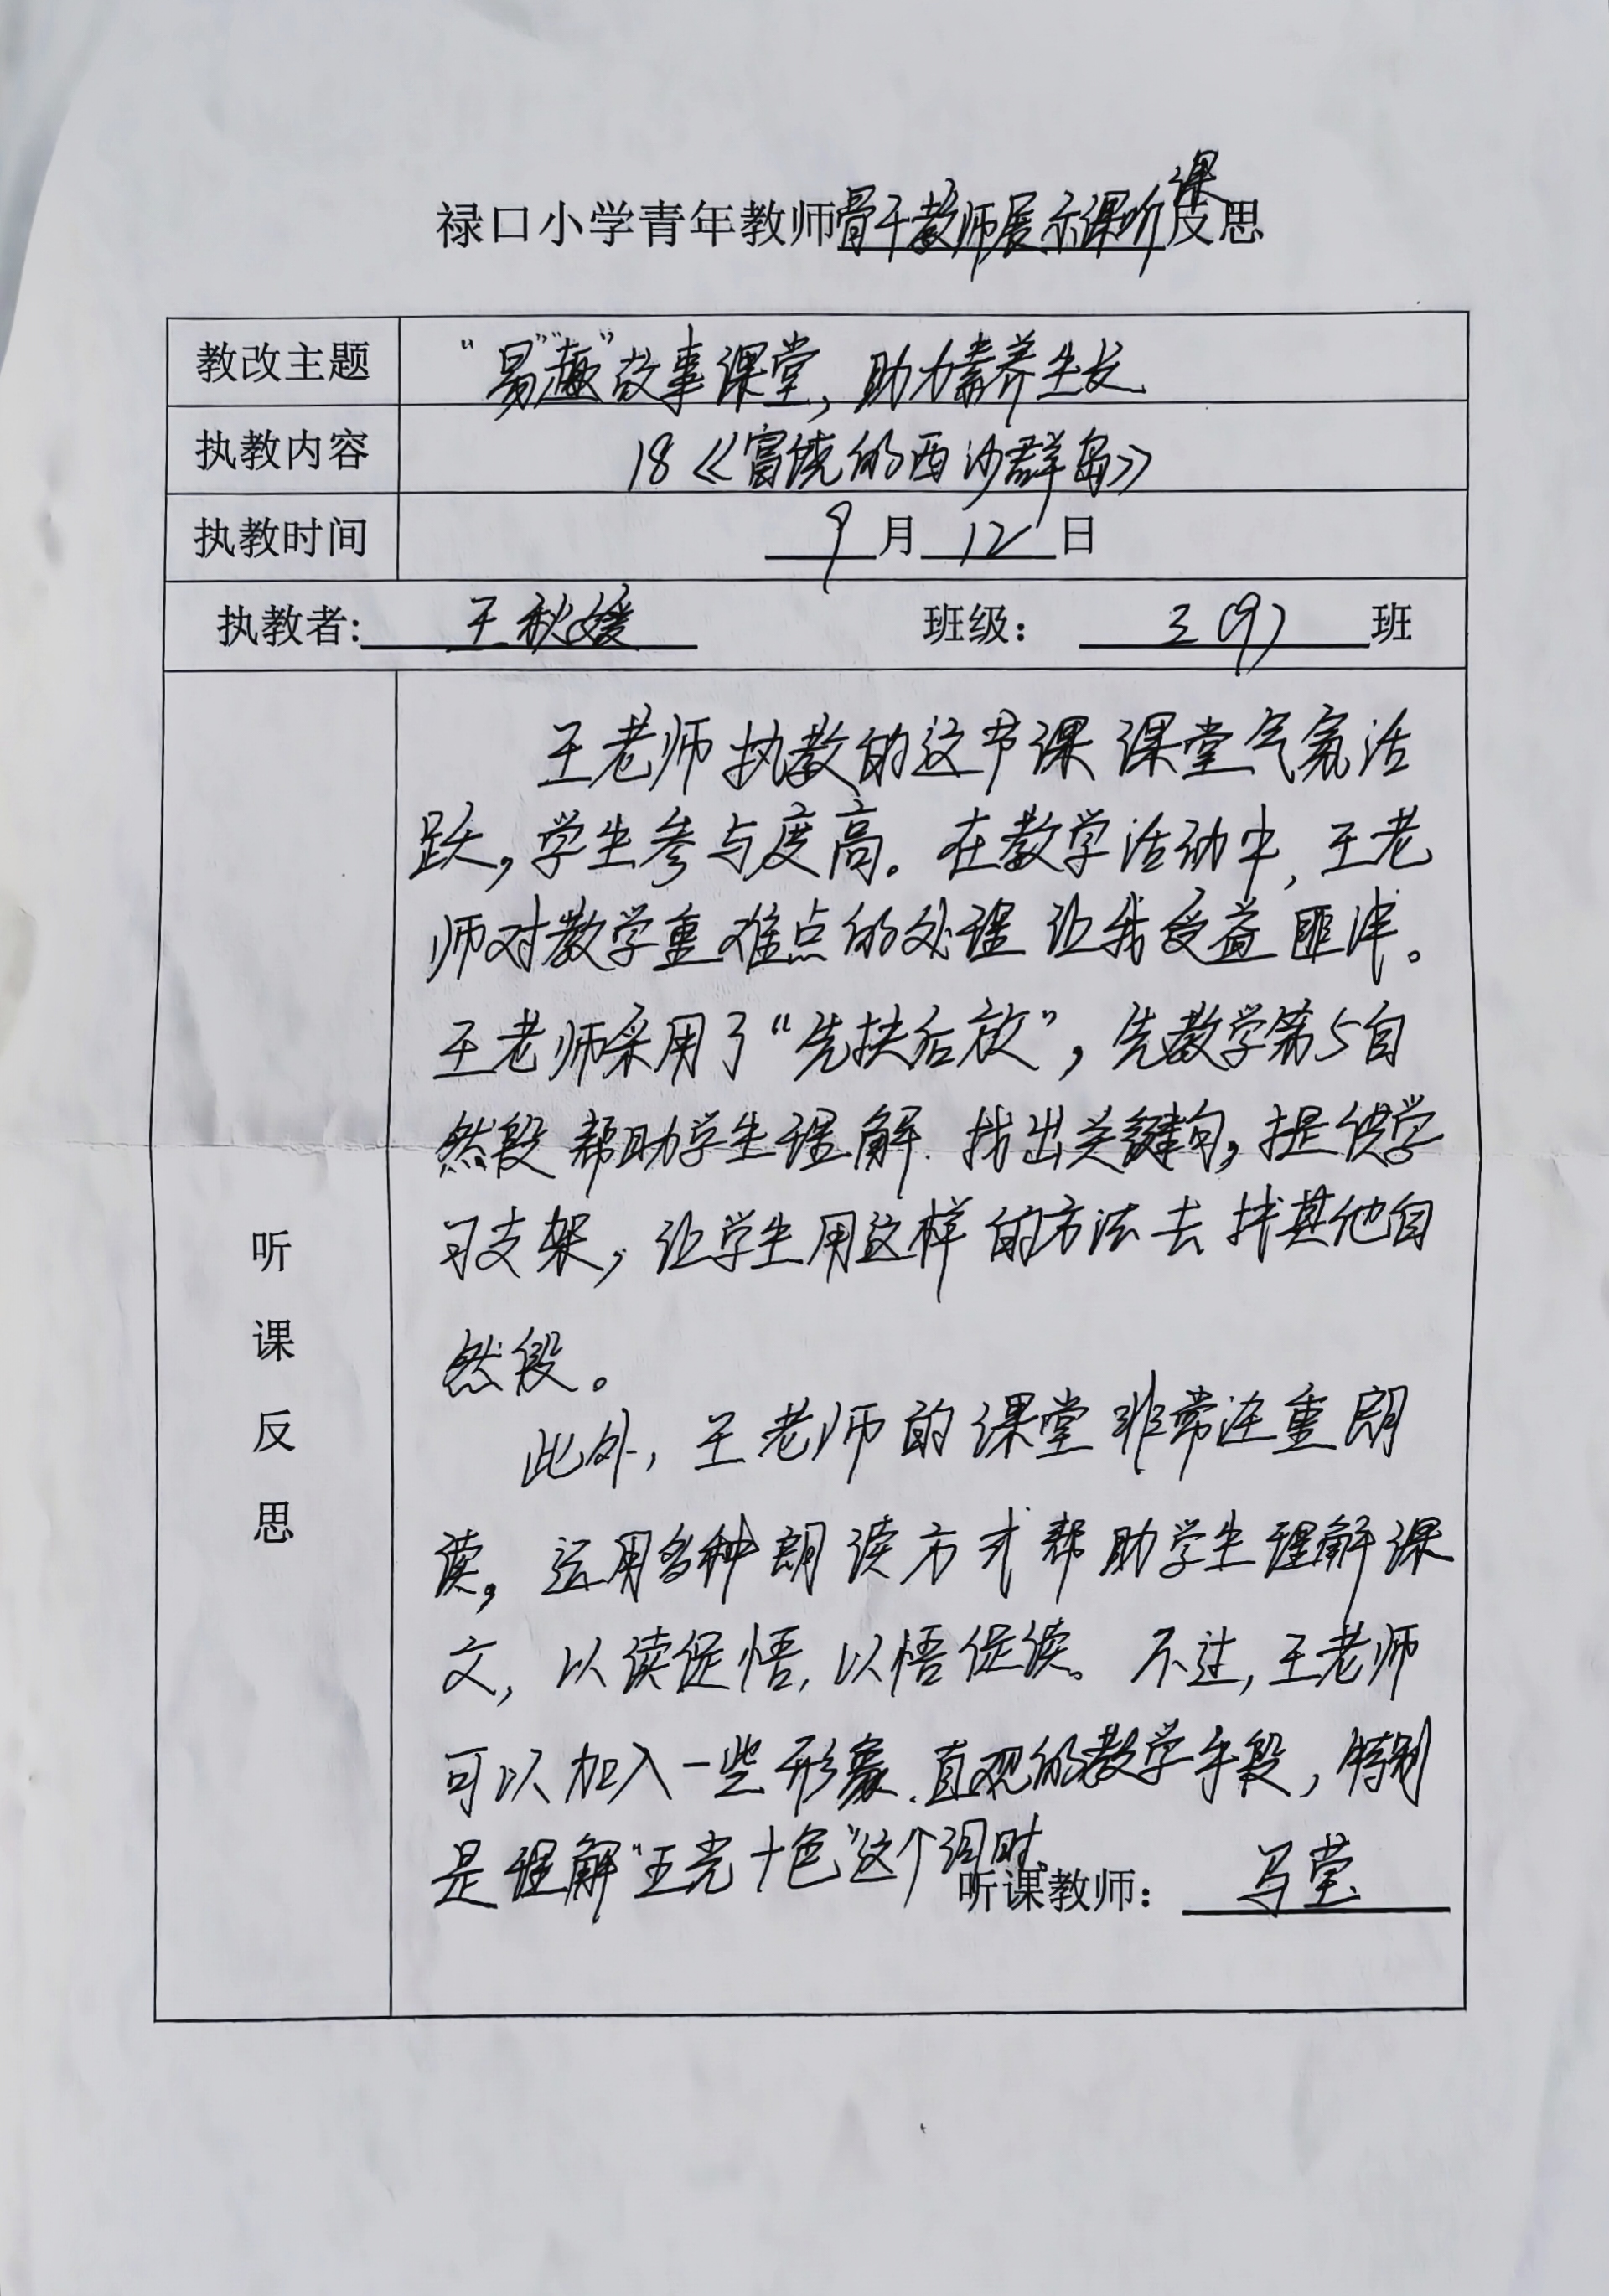 禄口小学青年教师骨干教师展示课听课反思
教改主题 “易”“趣”故事课堂，助力素养生长
执教内容 18《富饶的西沙群岛》
执教时间 9月12日
执教者：王秋媛 班级：三（9）班
听课反思
王老师执教的这节课 课堂气氛活
跃，学生参与度高。在教学活动中，王老
师对教学重难点的处理让我受益匪浅。
王老师采用了“先扶后放”，先教学第5自
然段帮助学生理解.找出关键句，提供学
习支架，让学生用这样的方法去找其他自
然段。
此外，王老师的课堂非常注重朗
读，运用多种朗读方式帮助学生理解课
文，以读促悟，以悟促读。不过，王老师
可以加入一些形象、直观的教学手段，特别
是理解“五光十色”这个词时。
听课教师：马莹